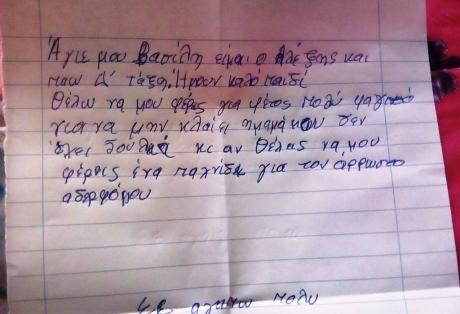 Άγιε μου Βασίλη είμαι ο Αλέξης και
παω Δ' τάξη. Ήμουν καλό παιδί
Θέλω να μου φέρεις για φέτος πολύ φαγητό
για να μην κλαίει η μαμά μου δεν
έχει δουλειά κι αν θέλεις να μου
φέρεις ένα παιχνίδι για τον άρρωστο
αδερφό μου
Σε αγαπαω πολυ